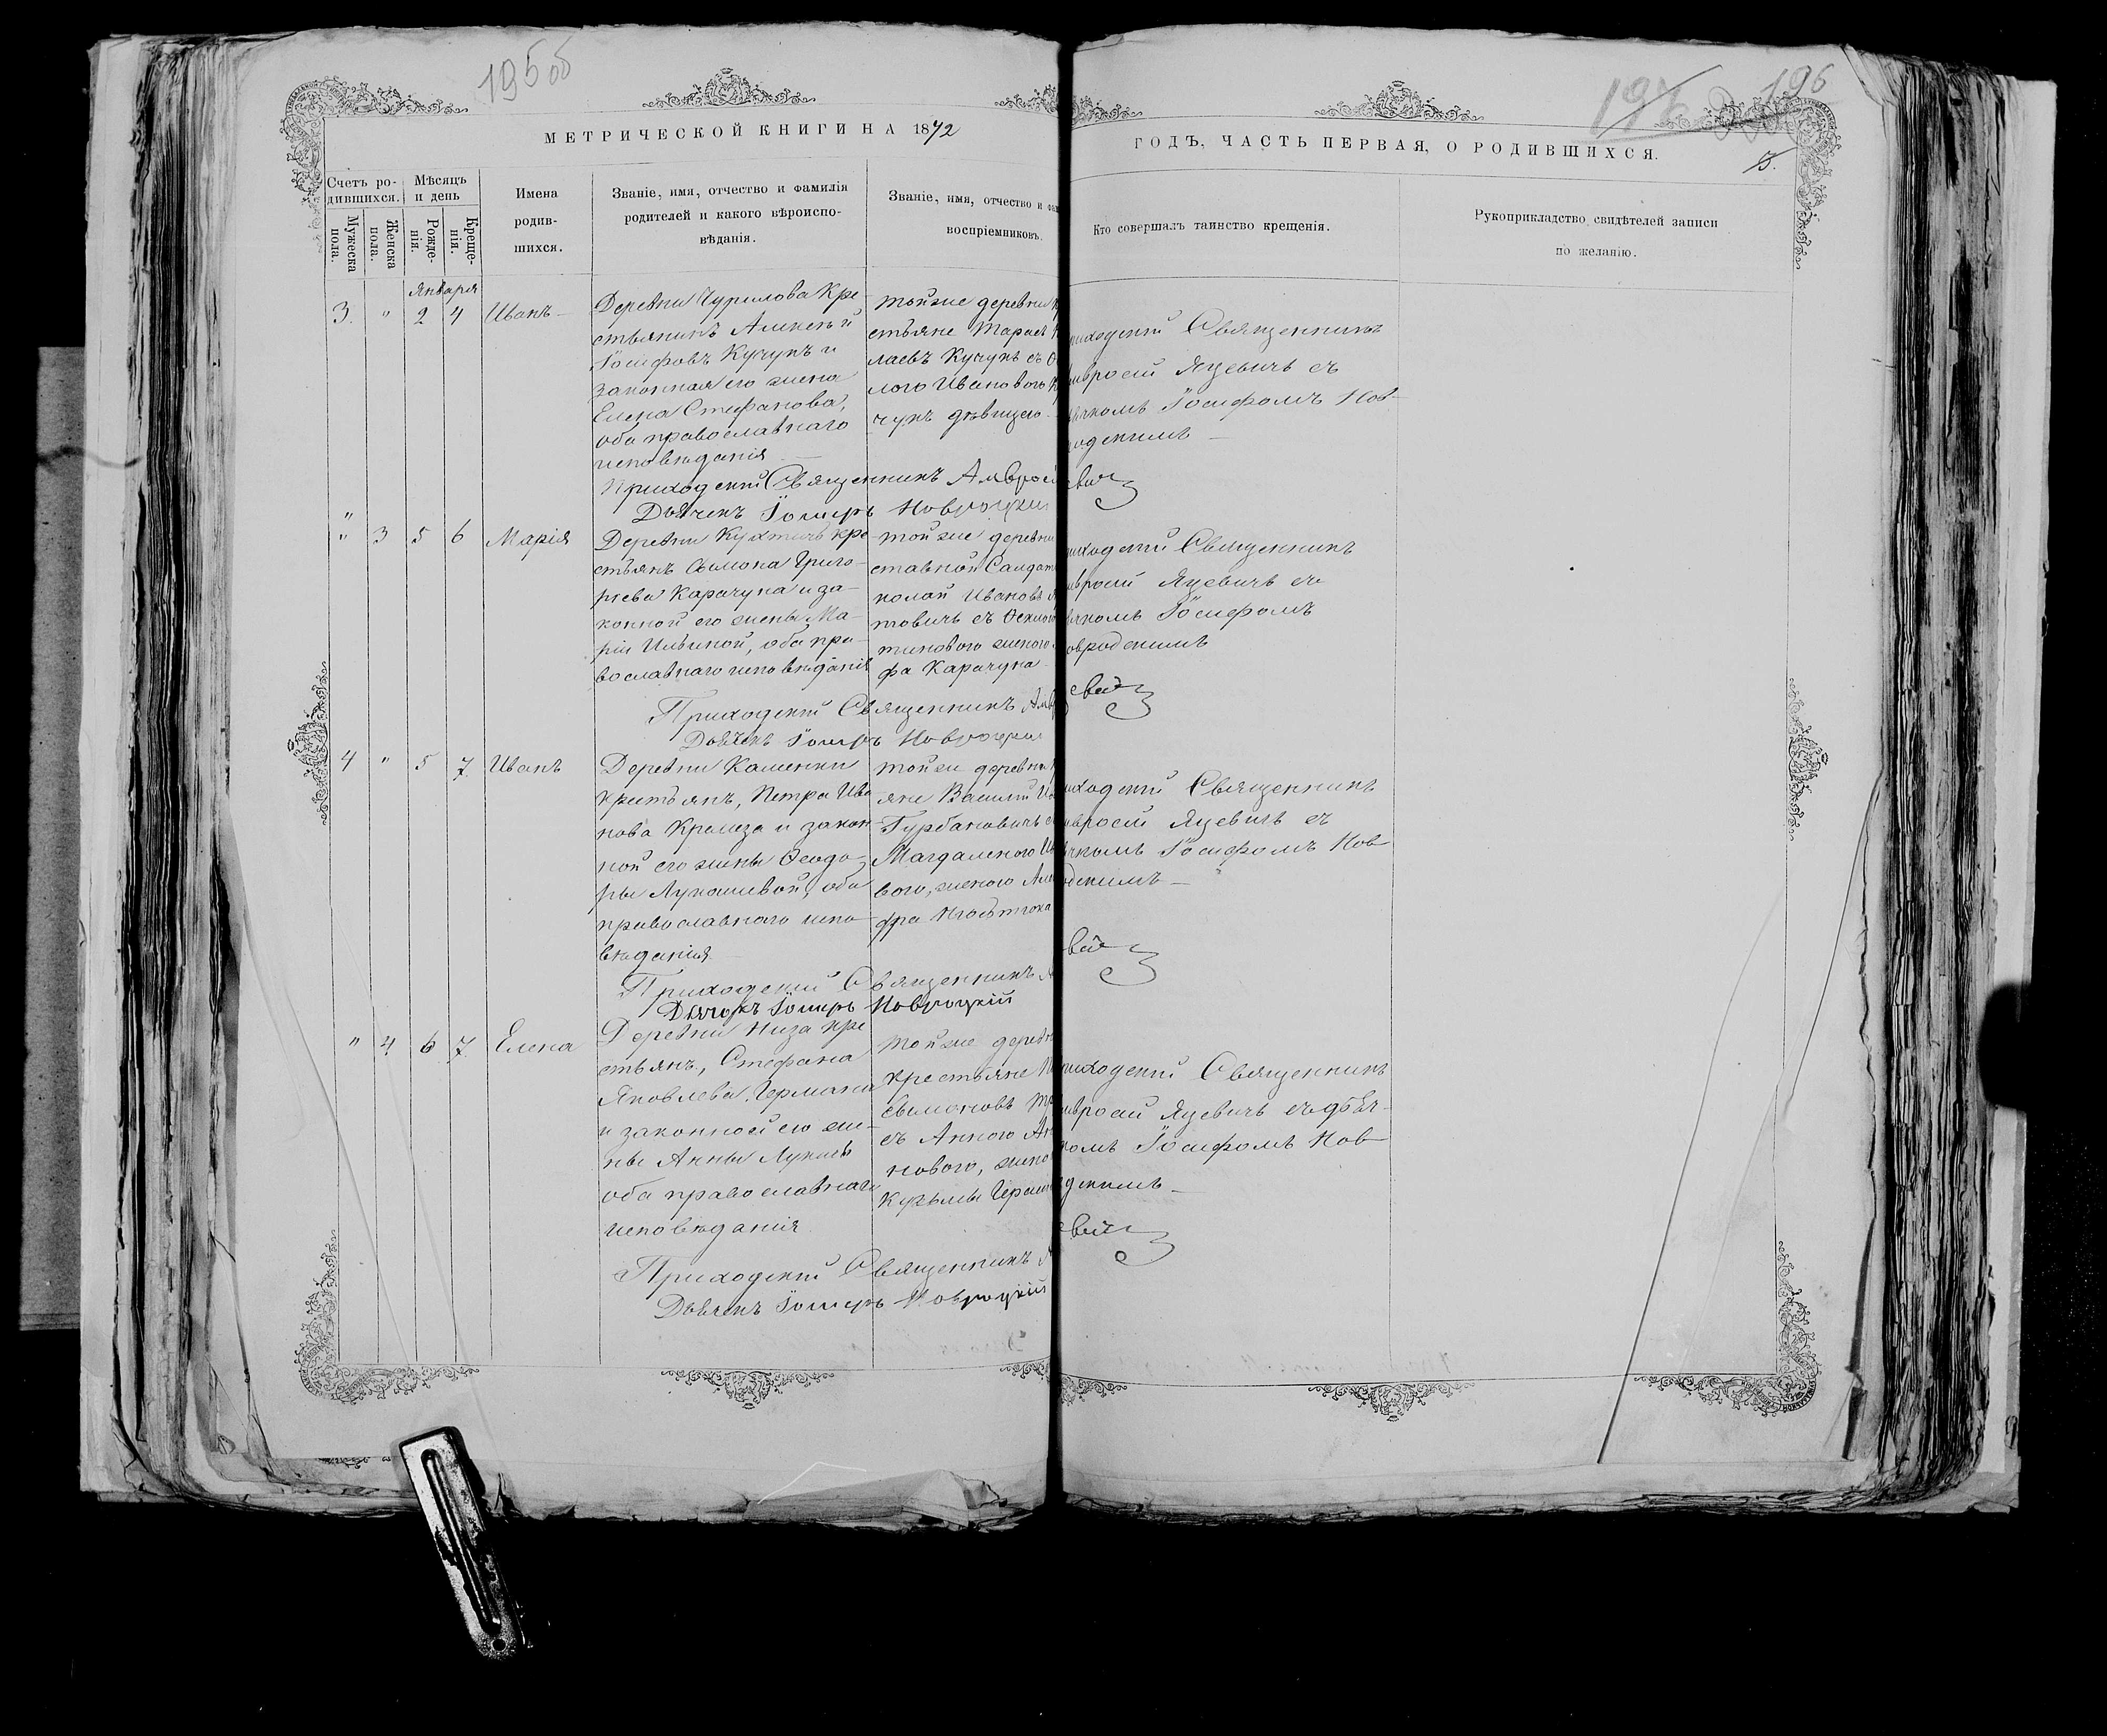 195 об
196
МЕТРИЧЕСКОЙ КНИГИ НА 1872
ГОДЪ, ЧАСТЬ ПЕРВАЯ, О РОДИВШИХСЯ.
Счетъ ро-
дившихся.
Мужеска
пола.
Женска
пола.
Мѣсяцъ
и день
Рожде-
нія.
Креще-
нія.
Имена
родив-
шихся.
Званіе, имя, отчество и фамилія
родителей и какого вѣроиспо-
вѣданія.
Званіе, имя, отчество и фам
воспріемниковъ.
Кто совершалъ таинство крещенія.
Рукоприкладство свидѣтелей записи
по желанію.
Января
3. " 2 4 Иванъ
Деревни Чурилова Кре-
стьянинъ Алексѣй
Іосифовъ Кучукъ и
законная его жена
Елена Стефанова,
оба православнаго
исповѣданія
тойже деревни
стьяне Тарасъ
лаевъ Кучукъ съ
Ивановою
чукъ дѣвицею
риходскій Священникъ
мвросій Яцевичъ съ
ячкомъ Іосифомъ Нов-
родскимъ
Приходскій Священникъ Амвросі
евич
Дьячекъ Іосифъ Новроцкій
" 3 5 6 Марія
Деревни Кухтичъ кре-
стьянъ Симона Григо-
рьева Карачуна и за-
конной его жены Ма-
ріи Ильиной, оба пра-
вославнаго исповѣданія
тойже деревни
ставной Салдатъ
колай Ивановъ
товичъ съ
тиновою женою
фа Карачуна
риходскій Священникъ
мвросій Яцевичъ съ
ячкомъ Іосифомъ
овродскимъ
Приходскій Священникъ Амв
евич
Дьячекъ Іосифъ Новроцкі
4 " 5 7 Иванъ
Деревни Каменки
крестьянъ, Петра Ива
нова и закон-
ной его жены Ѳеодо-
ры Лукашевой, оба
православнаго испо-
вѣданія
тойже деревни
яне Василій
Гурбановичъ
Магдаленою
вою, женою
риходскій Священникъ
мвросій Яцевичъ съ
ячкомъ Іосифомъ Нов-
одскимъ
Приходскій Священникъ А
вич
Дьячокъ Іосифъ Новроцкій
" 4 6 7 Елена
Деревни Низа кре
стьянъ, Стефана
Яковлева Германа
и законной его же-
ны Анны
оба православнаго
исповѣданія
тойже деревн
крестьяне
Симоновъ
съ Анною
новою, жено
Кузьмы
риходскій Священникъ
мвросій Яцевичъ съ дьяч-
комъ Іосифомъ Нов-
одскимъ
Приходскій Священникъ А
евич
Дьячекъ Іосифъ Новроцкій